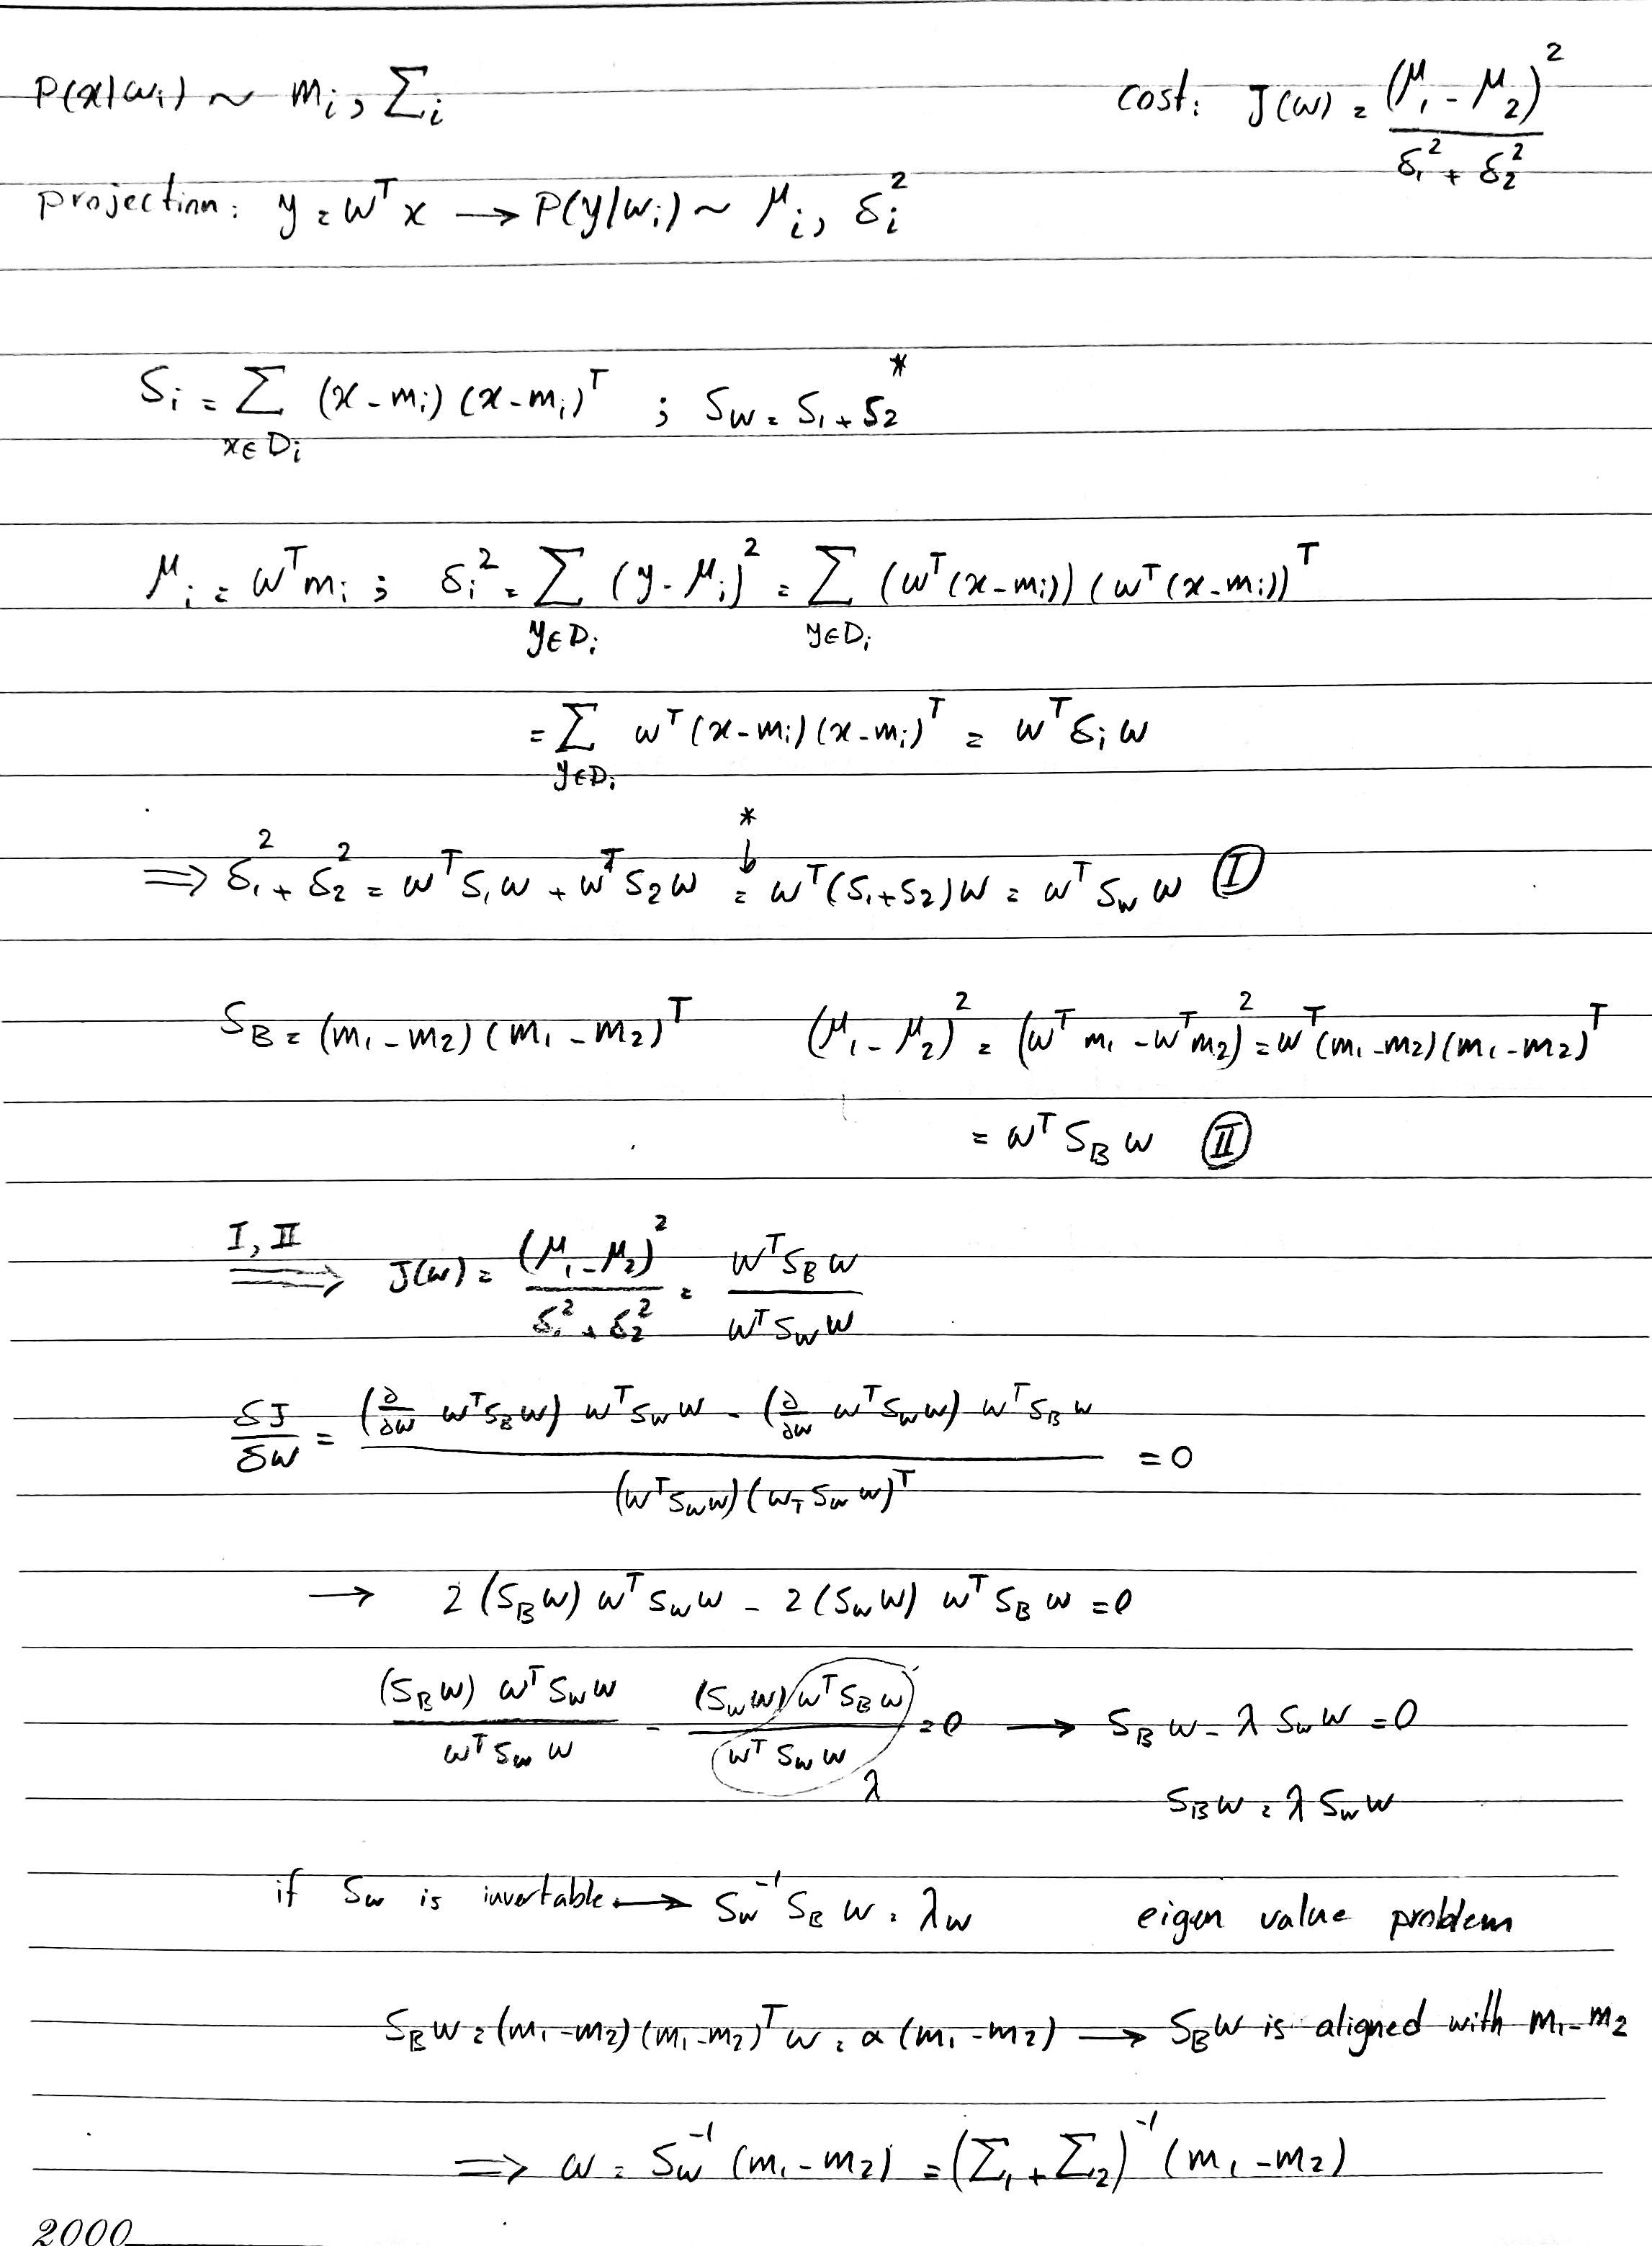 P(x|ω_i) ~ m_i, Σ_i    cost: J(w) = (μ_1 - μ_2)^2 / (δ_1^2 + δ_2^2)
projection: y = w^T x → P(y|w_i) ~ μ_i, δ_i^2
S_i = Σ_{x∈D_i} (x - m_i)(x - m_i)^T ; S_W = S_1 + S_2 *
μ_i = w^T m_i ; δ_i^2 = Σ_{y∈D_i} (y - μ_i)^2 = Σ_{y∈D_i} (w^T(x - m_i))(w^T(x - m_i))^T
= Σ_{y∈D_i} w^T(x - m_i)(x - m_i)^T = w^T δ_i w
*
↓
⟹ δ_1^2 + δ_2^2 = w^T S_1 w + w^T S_2 w = w^T(S_1 + S_2)w = w^T S_w w Ⓘ
S_B = (m_1 - m_2)(m_1 - m_2)^T    (μ_1 - μ_2)^2 = (w^T m_1 - w^T m_2)^2 = w^T(m_1 - m_2)(m_1 - m_2)^T
= w^T S_B w (II)
I, II ⟹ J(w) = (μ_1 - μ_2)^2 / (δ_1^2 + δ_2^2) = w^T S_B w / w^T S_w w
δJ/δw = ((∂/∂w w^T S_B w) w^T S_w w - (∂/∂w w^T S_w w) w^T S_B w) / ((w^T S_w w)(w_T S_w w)^T) = 0
→ 2(S_B w) w^T S_w w - 2(S_w w) w^T S_B w = 0
(S_B w) w^T S_w w / w^T S_w w - (S_w w)(w^T S_B w) / w^T S_w w = 0 → S_B w - λ S_w w = 0
λ
S_B w = λ S_w w
if S_w is invertable → S_w^-1 S_B w = λw    eigen value problem
S_B w = (m_1 - m_2)(m_1 - m_2)^T w = α(m_1 - m_2) → S_B w is aligned with m_1 - m_2
⟹ w = S_w^-1 (m_1 - m_2) = (Σ_1 + Σ_2)^-1 (m_1 - m_2)
2000